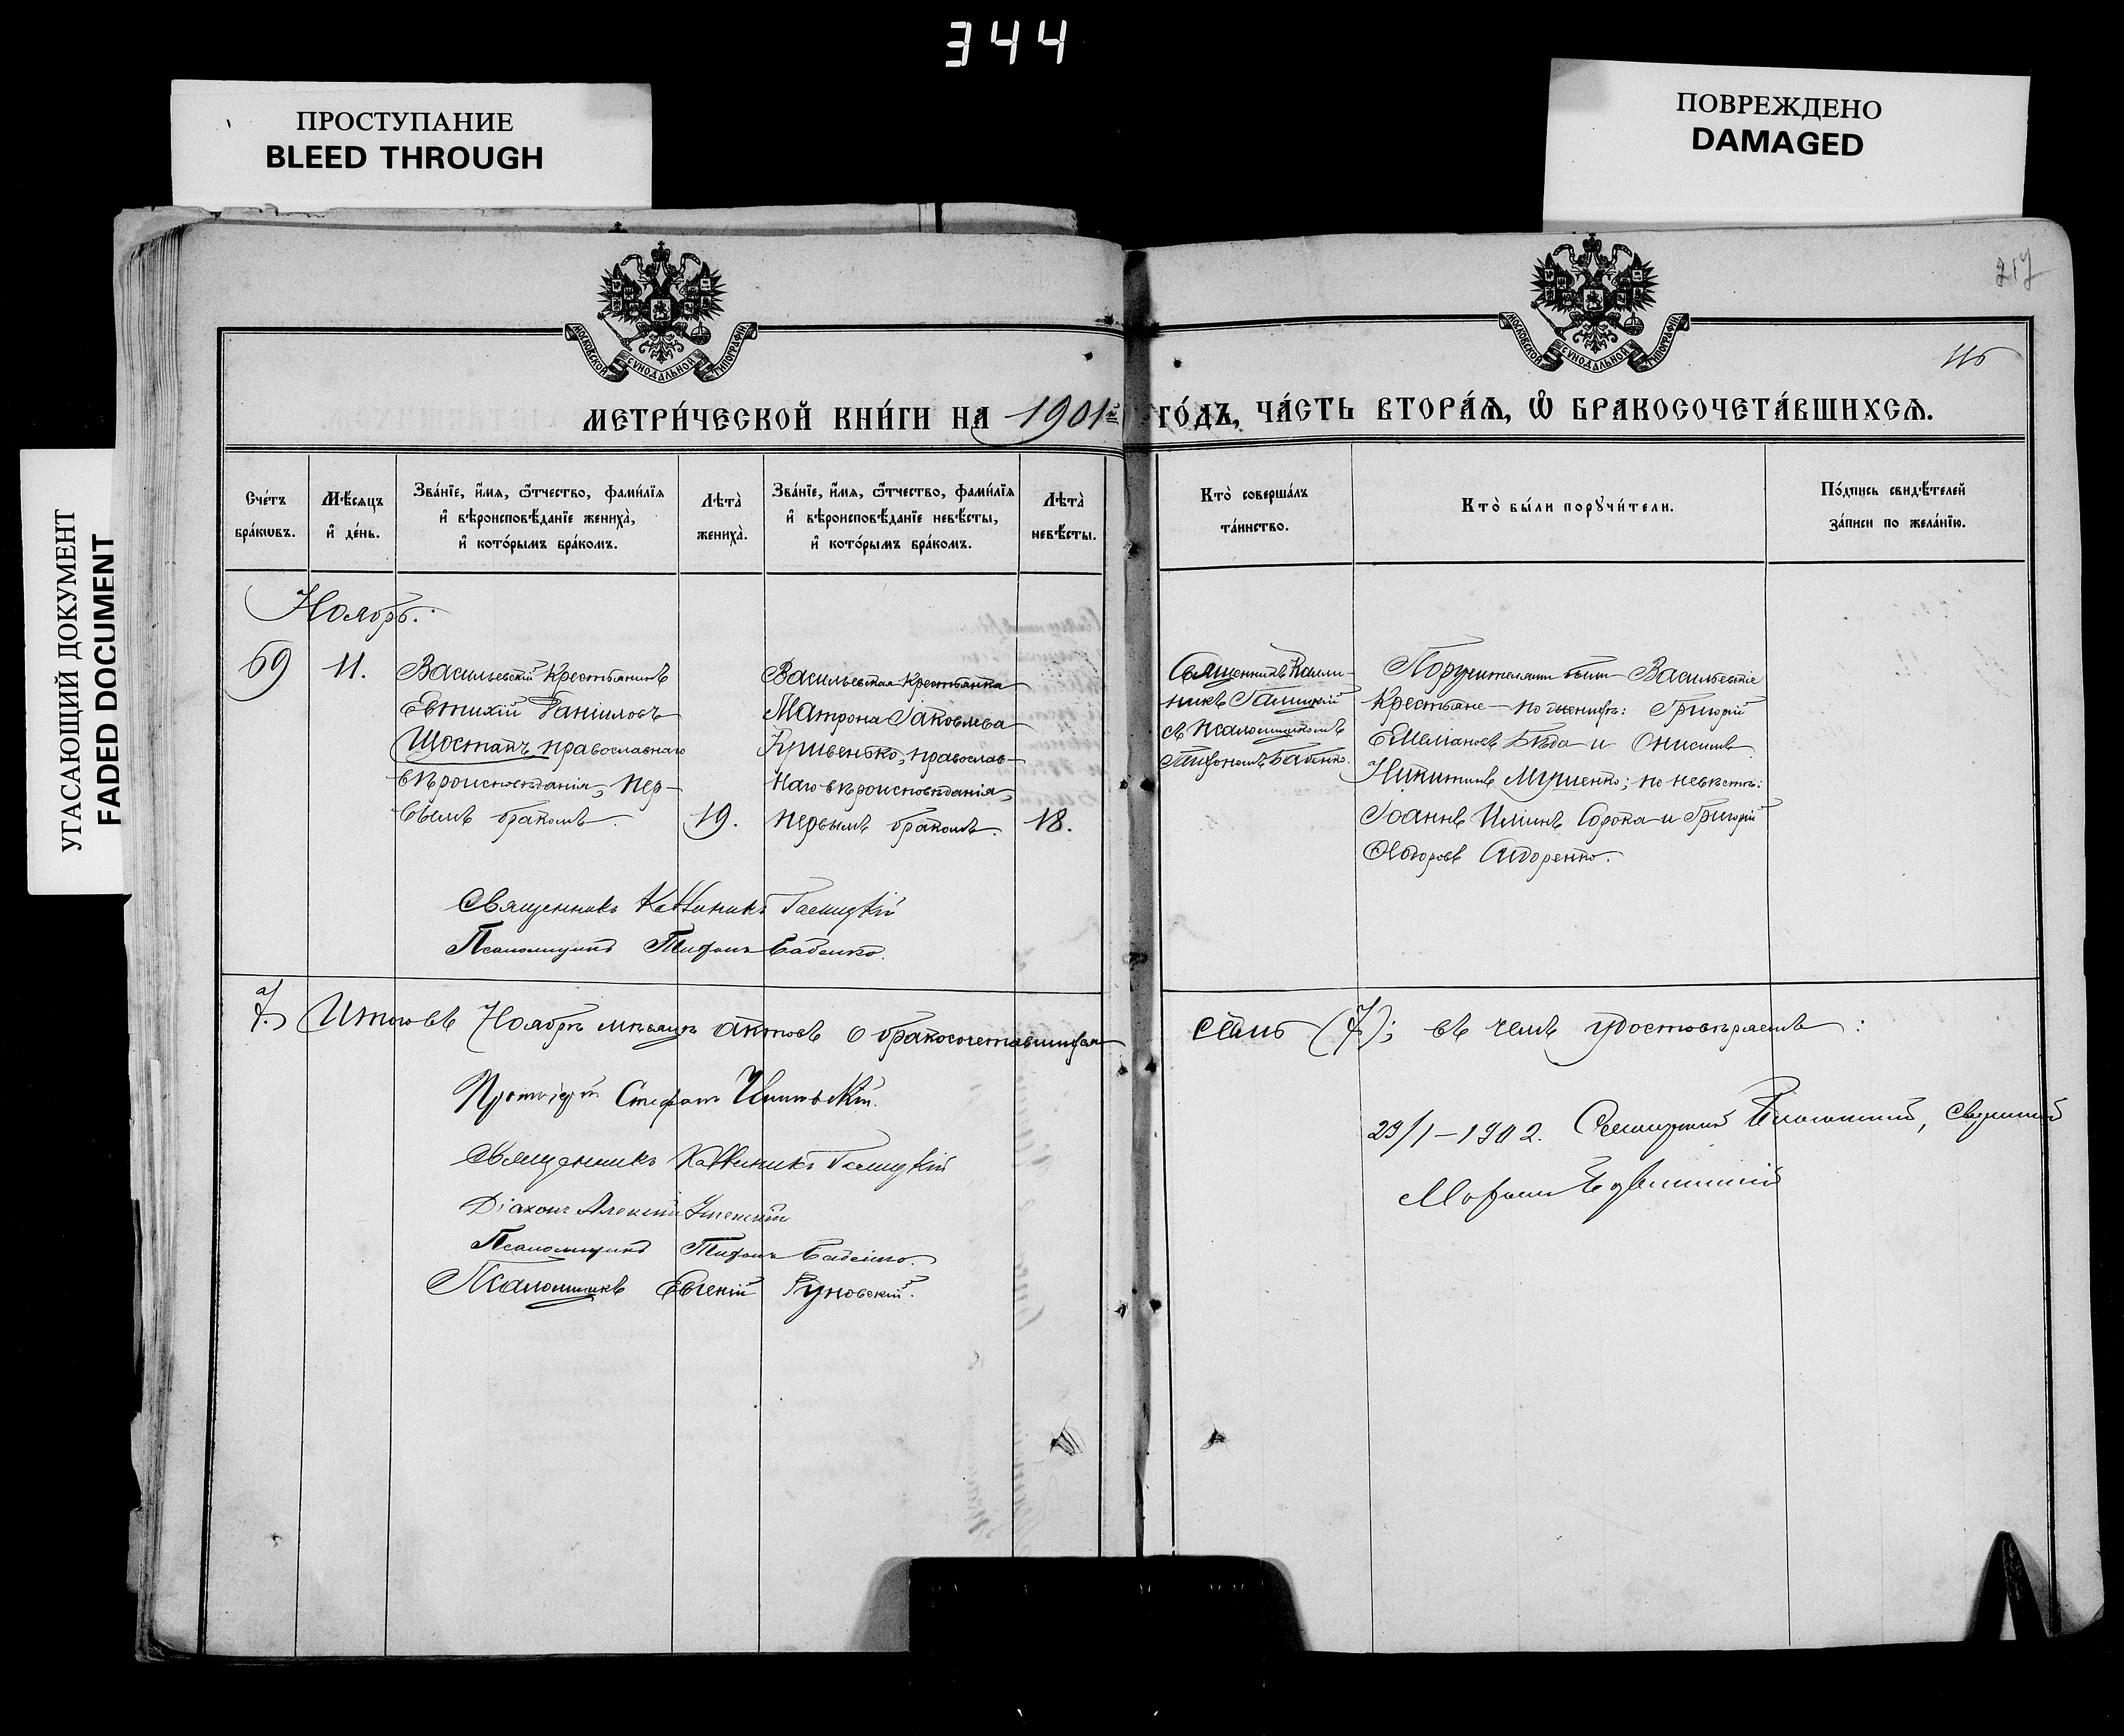 344
ПРОСТУПАНИЕ
BLEED THROUGH
ПОВРЕЖДЕНО
DAMAGED
УГАСАЮЩИЙ ДОКУМЕНТ
FADED DOCUMENT
217
116
МОСКОВСКОЙ СѴНОДАЛЬНОЙ ТИПОГРАФІИ
МОСКОВСКОЙ СѴНОДАЛЬНОЙ ТИПОГРАФІИ
МЕТРИ́ЧЕСКОЙ КНИ́ГИ НА 1901й ГО́ДЪ, ЧА́СТЬ ВТОРА́Я, Ѡ БРАКОСОЧЕТА́ВШИХСЯ.
Сче́тъ
бра́кωвъ.
Мѣ́сяцъ
и҆ де́нь.
Зва́нїе, и҆́мя, ѻ҆́тчество, фами́лїя
и҆ вѣроисповѣ́данїе жениха̀,
и҆ кото́рымъ бра́комъ.
Лѣта̀
жениха̀.
Зва́нїе, и҆́мя, ѻ҆́тчество, фами́лїя
и҆ вѣроисповѣ́данїе невѣ́сты,
и҆ кото́рымъ бра́комъ.
Лѣта̀
невѣ́сты.
Кто̀ соверша́лъ
та́инство.
Кто̀ бы́ли порꙋчи́тели.
По́дпись свидѣ́телей
за́писи по жела́нїю.
Ноябрь.
69
11.
Васильевскій крестьянинъ
Евтихій Даніиловъ
Шостакъ, православнаго
вѣроисповѣданія, пер-
вымъ бракомъ.
19.
Васильевская крестьянка
Матрона Іаковлева
Кривенько, православ-
наго вѣроисповѣданія,
первымъ бракомъ.
18.
Священникъ Калли-
никъ Галицкій
съ псаломщикомъ
Тифономъ Бабенко.
Поручителями были Васильевскіе
крестьяне по женихѣ: Григорій
Емеліановъ Бѣда и Онисимъ
Никитинъ по невѣстѣ:
Іоаннъ Илиинъ Сорока и Григорій
Ѳедоровъ Сидоренко.
Священникъ Каллиникъ Галицкій
Псаломщикъ Тифонъ Бабенко.
7.
Итого въ Ноябрѣ мѣсяцѣ актовъ о бракосочетавшихся
семь (7); въ чемъ удостовѣряемъ:
Протоіерей Стефанъ
Священникъ Каллиникъ Галицкій
Діаконъ Алексій
Псаломщикъ Тифонъ Бабенко.
Псаломщикъ Евгеній Руновскій.
29/I – 1902.